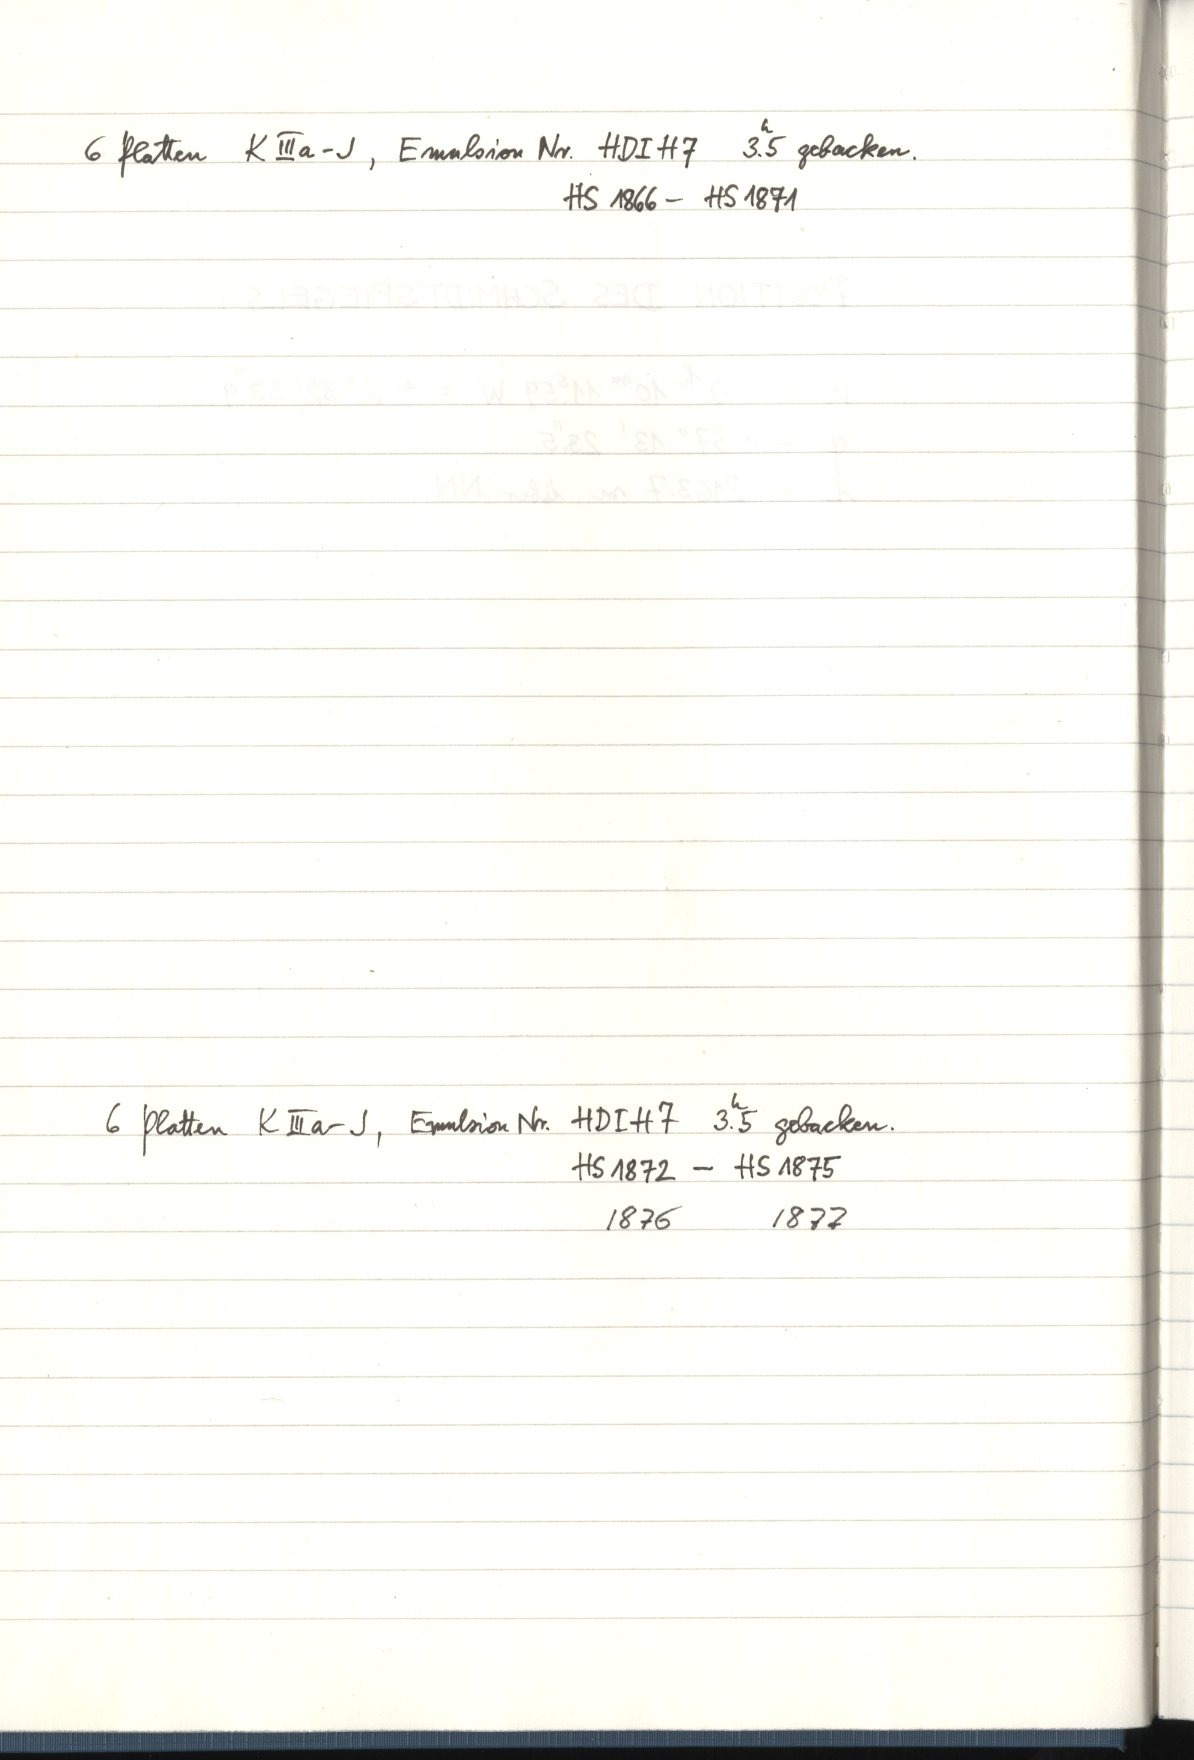 6 Platten K IIIa-J, Emulsion Nr. HDIH7 3.ʰ5 gebacken.
HS 1866 - HS 1871
POSITION DES SCHMIDTSPIEGELS :
6 Platten K IIIa-J, Emulsion Nr. HDIH7 3.ʰ5 gebacken.
HS 1872 - HS 1875
1876 1877